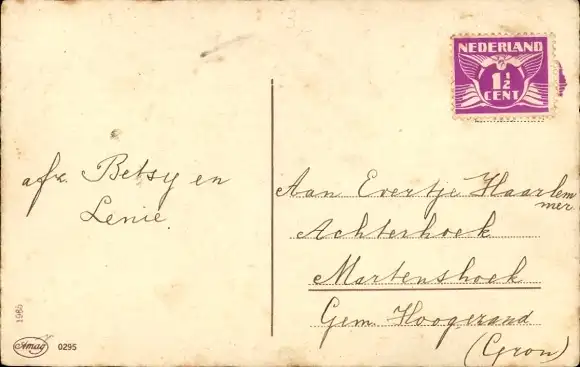 NEDERLAND
1 1/2
CENT
afz. Betsy en
Lenie.
Aan Evertje Haarlem
mer
Achterhoek
Martenshoek
Gem. Hoogezand
(Gron)
1985
Amag
0295